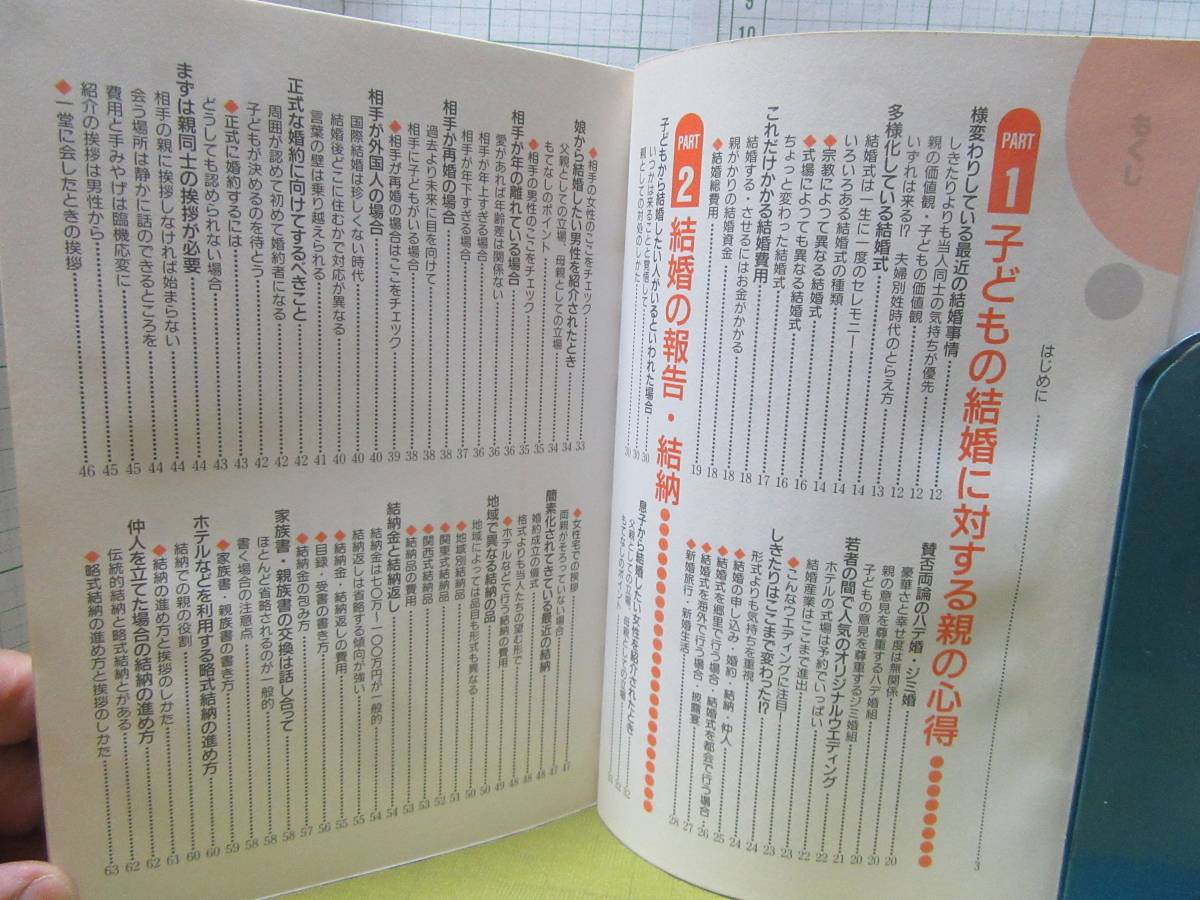 もくじ
はじめに……3
PART 1 子どもの結婚に対する親の心得
様変わりしている最近の結婚事情……12
しきたりよりも当人同士の気持ちが優先……12
親の価値観・子どもの価値観……12
いずれは来る!? 夫婦別姓時代のとらえ方……12
多様化している結婚式……13
結婚式は一生に一度のセレモニー……14
いろいろある結婚式の種類……14
◆宗教によって異なる結婚式……14
◆式場によっても異なる結婚式……16
ちょっと変わった結婚式……16
これだけかかる結婚費用……17
結婚する・させるにはお金がかかる……18
親がかりの結婚資金……18
◆結婚総費用……19
賛否両論のハデ婚・ジミ婚……20
豪華さと幸せ度は無関係……20
親の意見を尊重するハデ婚組……20
子どもの意見を尊重するジミ婚組……21
若者の間で人気のオリジナルウエディング……22
ホテルの式場は予約でいっぱい……22
結婚産業はここまで進出……22
◆こんなウエディングに注目!……23
しきたりはここまで変わった!?……23
形式よりも気持ちを重視……24
◆結婚の申し込み・婚約・結納・仲人……24
◆結婚式を郷里で行う場合・結婚式を都会で行う場合……25
◆結婚式を海外で行う場合・披露宴……26
◆新婚旅行・新婚生活……28
PART 2 結婚の報告・結納
子どもから結婚したい人がいるといわれた場合……30
いつかは来ることと覚悟して……30
親としての対処のしかた……30
息子から結婚したい女性を紹介されたとき
父親としての立場、母親としての立場
もてなしのポイント
◆相手の女性のここをチェック……33
娘から結婚したい男性を紹介されたとき……34
父親としての立場、母親としての立場……34
もてなしのポイント……35
◆相手の男性のここをチェック……35
相手が年の離れている場合……36
愛があれば年齢差は関係ない……36
相手が年上すぎる場合……36
相手が年下すぎる場合……37
相手が再婚の場合……38
過去より未来に目を向けて……38
相手に子どもがいる場合……38
◆相手が再婚の場合はここをチェック……39
相手が外国人の場合……40
国際結婚は珍しくない時代……40
結婚後どこに住むかで対応が異なる……40
言葉の壁は乗り越えられる……41
正式な婚約に向けてするべきこと……42
周囲が認めて初めて婚約者になる……42
子どもが決めるのを待とう……42
◆正式に婚約するには……43
どうしても認められない場合……43
まずは親同士の挨拶が必要……44
相手の親に挨拶しなければ始まらない……44
会う場所は静かに話のできるところを……44
費用と手みやげは臨機応変に……45
紹介の挨拶は男性から……45
◆一堂に会したときの挨拶……46
◆女性宅での挨拶……47
両親がそろっていない場合……47
簡素化されてきている最近の結納……48
婚約成立の儀式……48
格式よりも当人たちの望む形で……48
◆ホテルなどで行う結納の費用……49
地域で異なる結納の品……50
地域によっては品目も形式も異なる……50
◆地域別結納品……51
◆関東式結納品……52
◆関西式結納品……53
◆結納品の費用……53
結納金と結納返し……54
結納金は七〇万～一〇〇万円が一般的……54
結納返しは省略する傾向が強い……55
◆結納金・結納返しの費用……55
◆目録・受書の書き方……56
◆結納金の包み方……57
家族書・親族書の交換は話し合って……58
ほとんど省略されるのが一般的……58
書く場合の注意点……58
◆家族書・親族書の書き方……59
ホテルなどを利用する略式結納の進め方……60
結納での親の役割……60
◆結納の進め方と挨拶のしかた……61
仲人を立てた場合の結納の進め方……62
伝統的結納と略式結納とがある……62
◆略式結納の進め方と挨拶のしかた……63